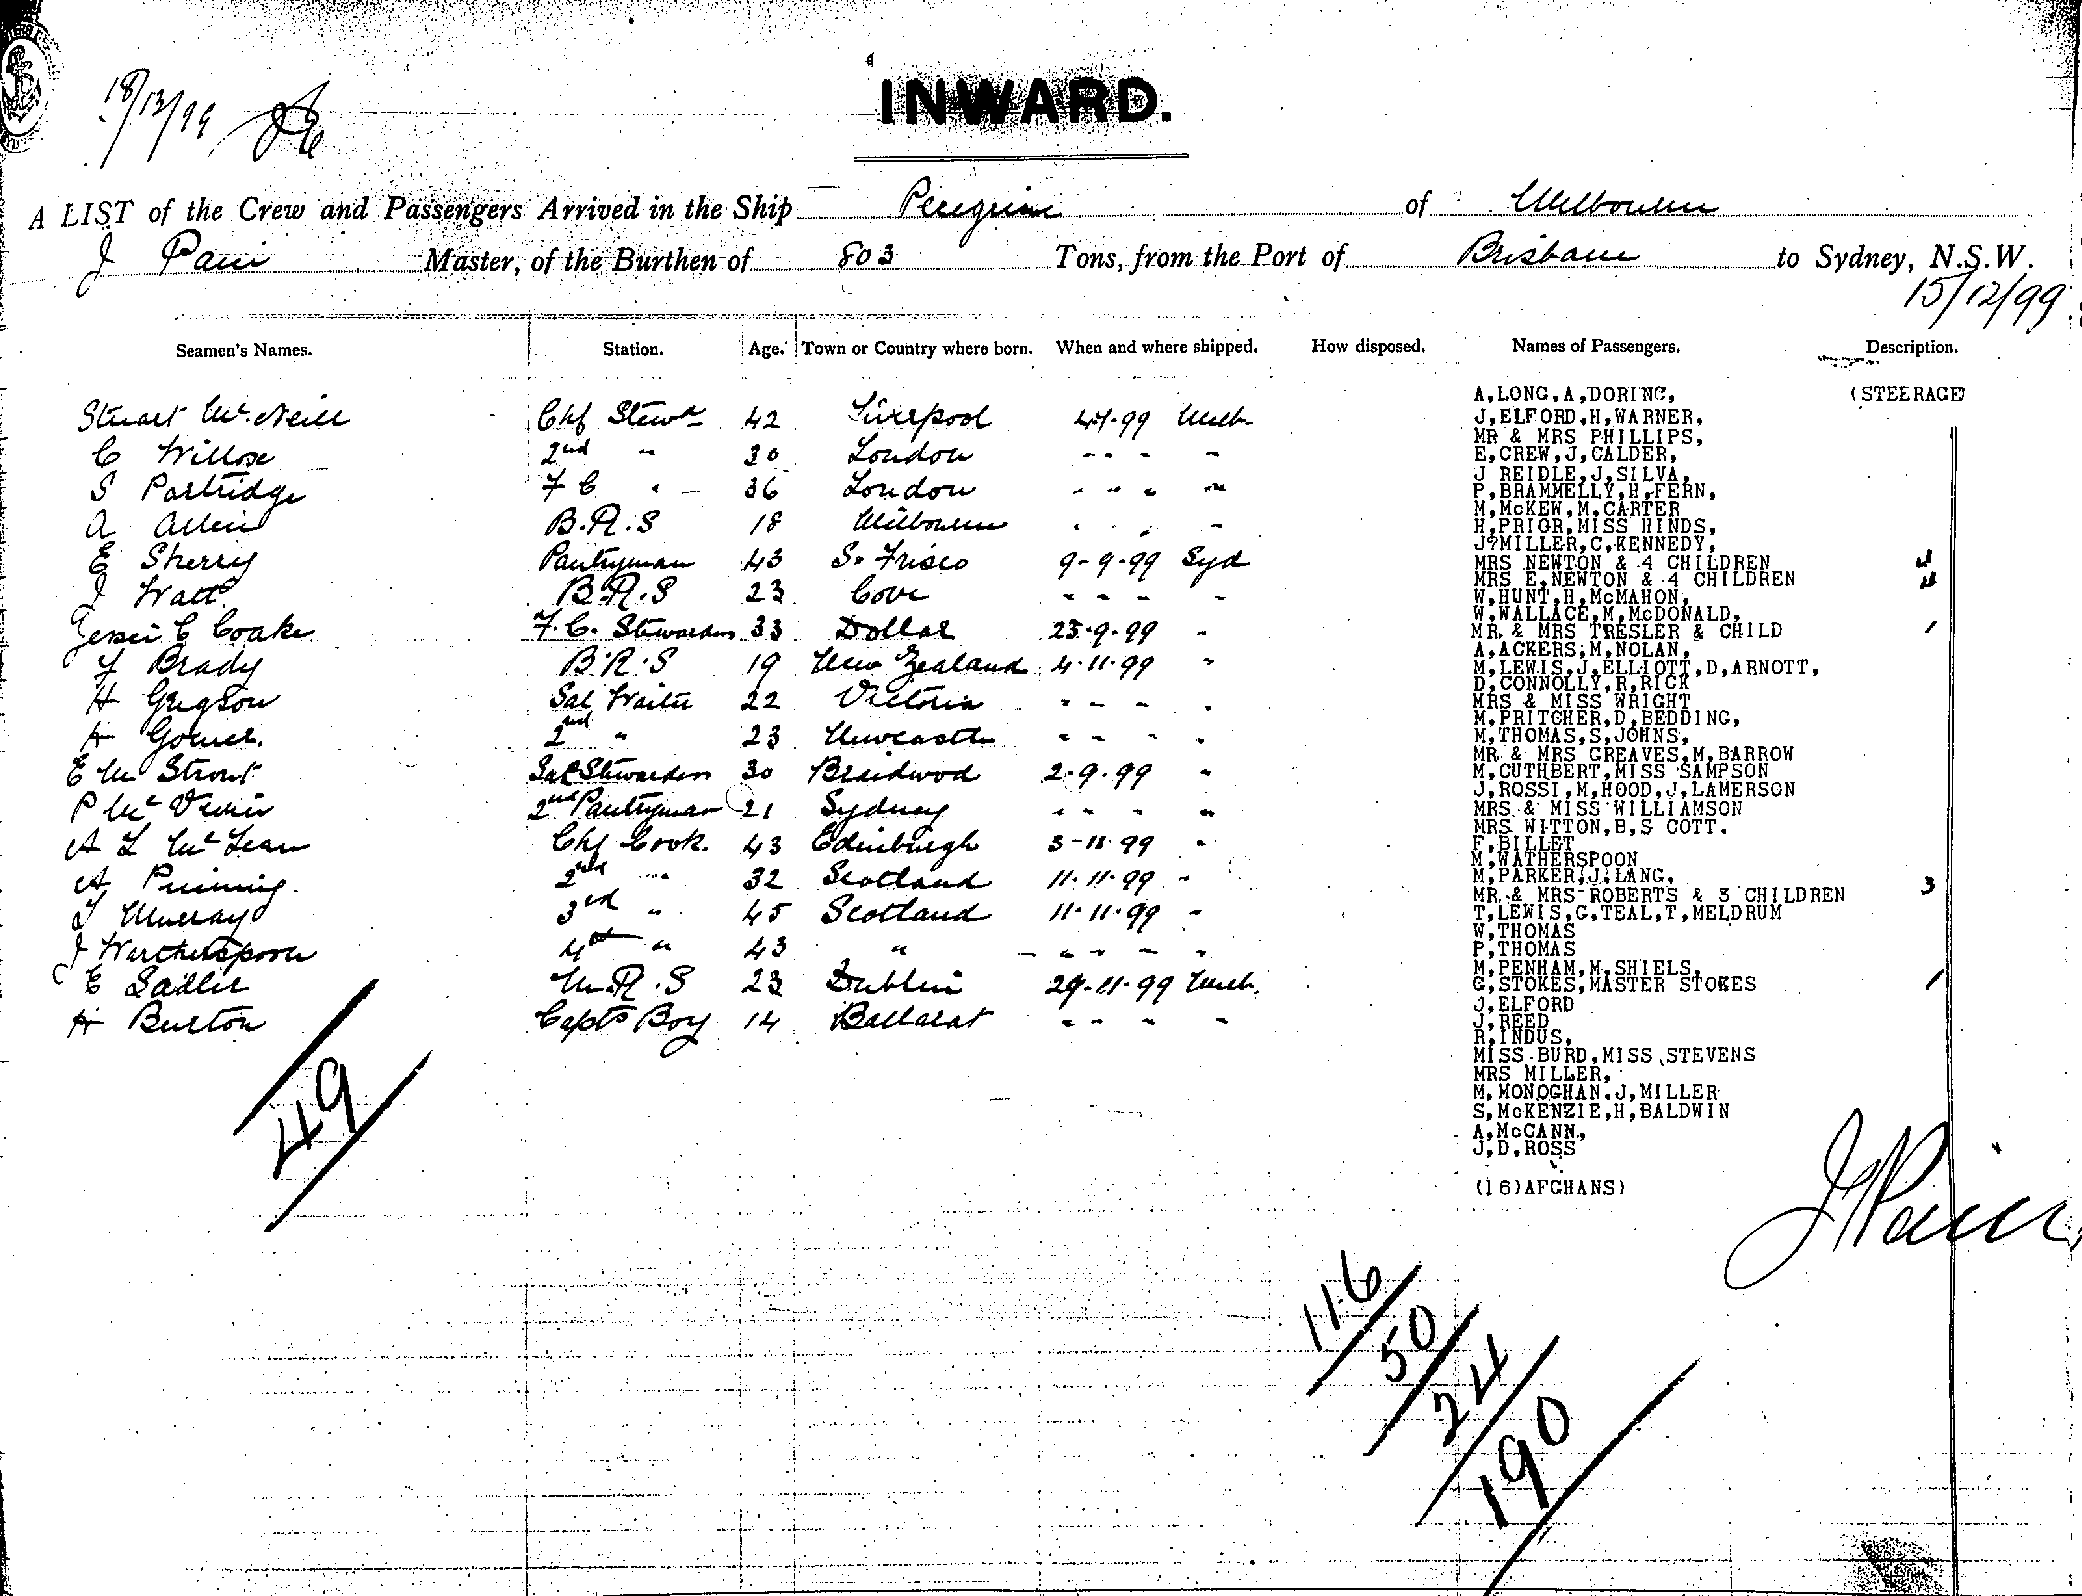 18/12/99
INWARD.
A LIST of the Crew and Passengers Arrived in the Ship Peregrine of Melbourne
J Pain Master, of the Burthen of 803 Tons, from the Port of Brisbane to Sydney, N.S.W.
15/12/99
Seamen's Names. Station. Age. Town or Country where born. When and where shipped. How disposed. Names of Passengers. Description.
Stuart McNeill Chf Stewd 42 Liverpool 4.7.99 Melb
C Willose 2nd " 30 London " " " "
S Partridge F C " 36 London " " " "
A Allen B.R.S 18 Melbourne " " " "
E Sherry Pantryman 43 S. Frisco 9-9-99 Syd
J Watt B.R.S 23 Cove " " " "
Jessie C Coake F.C. Stewardess 33 Dollar 23-9-99 "
F Brady B.R.S 19 New Zealand 4.11.99 "
H Gregson Sal Waiter 22 Victoria " " " "
H Gomer. 2nd " 23 Newcastle " " " "
E M Strout Sal Stewardess 30 Braidwood 2.9.99 "
P Mc 2nd Pantryman 21 Sydney " " " "
A L McLean Chf Cook. 43 Edinburgh 3-11.99 "
A 2nd " 32 Scotland 11.11.99 "
T Murray 3rd " 45 Scotland 11.11.99 "
J Wertherspoon 4th " 43 " " " " "
E Sadlier M.R.S 23 Dublin 29.11.99 Melb.
H Burton Capts Boy 14 Ballarat " " " "
49
A,LONG,A,DORING, (STEERAGE)
J,ELFORD,H,WARNER,
MR & MRS PHILLIPS,
E,CREW,J,CALDER,
J REIDLE,J,SILVA,
P,BRAMMELLY,H,FERN,
M,McKEW,M,CARTER
H,PRIOR,MISS HINDS,
J?MILLER,C,KENNEDY,
MRS NEWTON & 4 CHILDREN 4
MRS E,NEWTON & 4 CHILDREN 4
W,HUNT,H,McMAHON,
W,WALLACE,M,McDONALD,
MR & MRS TRESLER & CHILD 1
A,ACKERS,M,NOLAN,
M,LEWIS,J,ELLIOTT,D,ARNOTT,
D,CONNOLLY,R,RICK
MRS & MISS WRIGHT
M,PRITCHER,D,BEDDING,
M,THOMAS,S,JOHNS,
MR & MRS GREAVES,M,BARROW
M,CUTHBERT,MISS SAMPSON
J,ROSSI,M,HOOD,J,LAMERSON
MRS & MISS WILLIAMSON
MRS WITTON,B,S COTT.
F,BILLET
M,WATHERSPOON
M,PARKER,J,LANG,
MR & MRS ROBERTS & 3 CHILDREN 3
T,LEWIS,G,TEAL,T,MELDRUM
W,THOMAS
P,THOMAS
M,PENHAM,M,SHIELS,
G,STOKES,MASTER STOKES 1
J,ELFORD
J,REED
R,INDUS,
MISS BURD,MISS STEVENS
MRS MILLER,
M,MONOGHAN,J,MILLER
S,McKENZIE,H,BALDWIN
A,McCANN,
J,D,ROSS
(16)AFGHANS)
J Pain
116
50
24
190